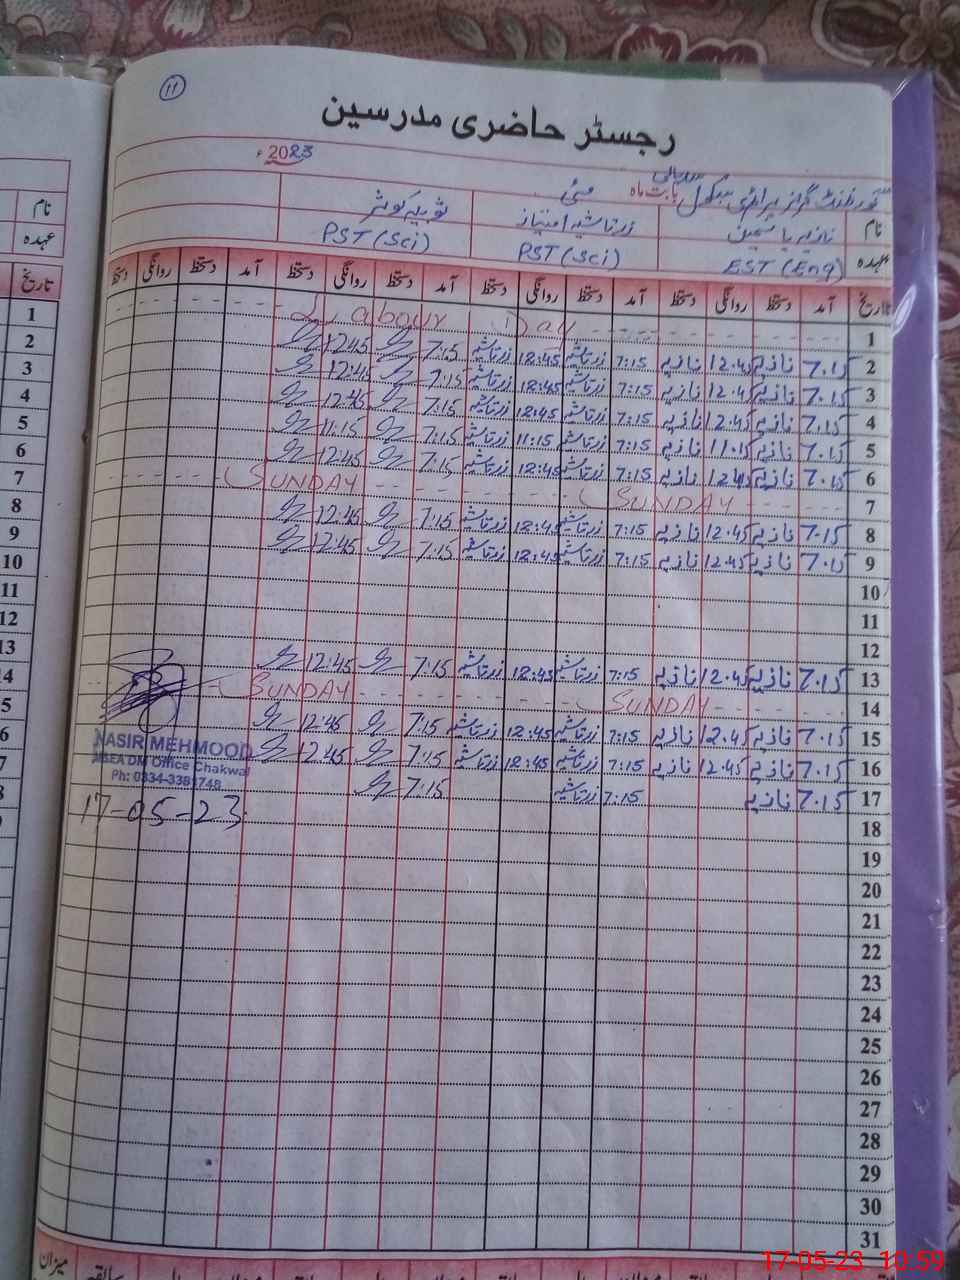 ۱۱
رجسٹر حاضری مدرسین
گورنمنٹ گرلز پرائمری سکول بابت ماہ مئی 2023ء
نام نازیہ یاسمین زرتاشیہ امتیاز ثوبیہ کوثر
عہدہ EST (Eng) PST (Sci) PST (Sci)
تاریخ آمد دستخط روانگی دستخط آمد دستخط روانگی دستخط آمد دستخط روانگی دستخط آمد دستخط روانگی دستخط
1 Labour Day
2 7.15 نازیہ 12.45 نازیہ 7:15 زرتاشیہ 12:45 زرتاشیہ 7:15 12:45
3 7.15 نازیہ 12.45 نازیہ 7:15 زرتاشیہ 12:45 زرتاشیہ 7:15 12:45
4 7.15 نازیہ 12.45 نازیہ 7:15 زرتاشیہ 12:45 زرتاشیہ 7:15 12:45
5 7.15 نازیہ 11.15 نازیہ 7:15 زرتاشیہ 11:15 زرتاشیہ 7:15 11:15
6 7.15 نازیہ 12.45 نازیہ 7:15 زرتاشیہ 12:45 زرتاشیہ 7:15 12:45
7 SUNDAY SUNDAY
8 7.15 نازیہ 12.45 نازیہ 7:15 زرتاشیہ 12:45 زرتاشیہ 7:15 12:45
9 7.15 نازیہ 12.45 نازیہ 7:15 زرتاشیہ 12:45 زرتاشیہ 7:15 12:45
10
11
12
13 7.15 نازیہ 12.45 نازیہ 7:15 زرتاشیہ 12:45 زرتاشیہ 7:15 12:45
14 SUNDAY SUNDAY
15 7.15 نازیہ 12.45 نازیہ 7:15 زرتاشیہ 12:45 زرتاشیہ 7:15 12:45
16 7.15 نازیہ 12.45 نازیہ 7:15 زرتاشیہ 12:45 زرتاشیہ 7:15 12:45
17 7.15 نازیہ 7:15 زرتاشیہ 7:15
18
19
20
21
22
23
24
25
26
27
28
29
30
31
NASIR MEHMOOD
MEA DM Office Chakwal
17-05-23
نام
عہدہ
تاریخ
1
2
3
4
5
6
7
8
9
10
11
12
13
میزان
17-05-23 10:59